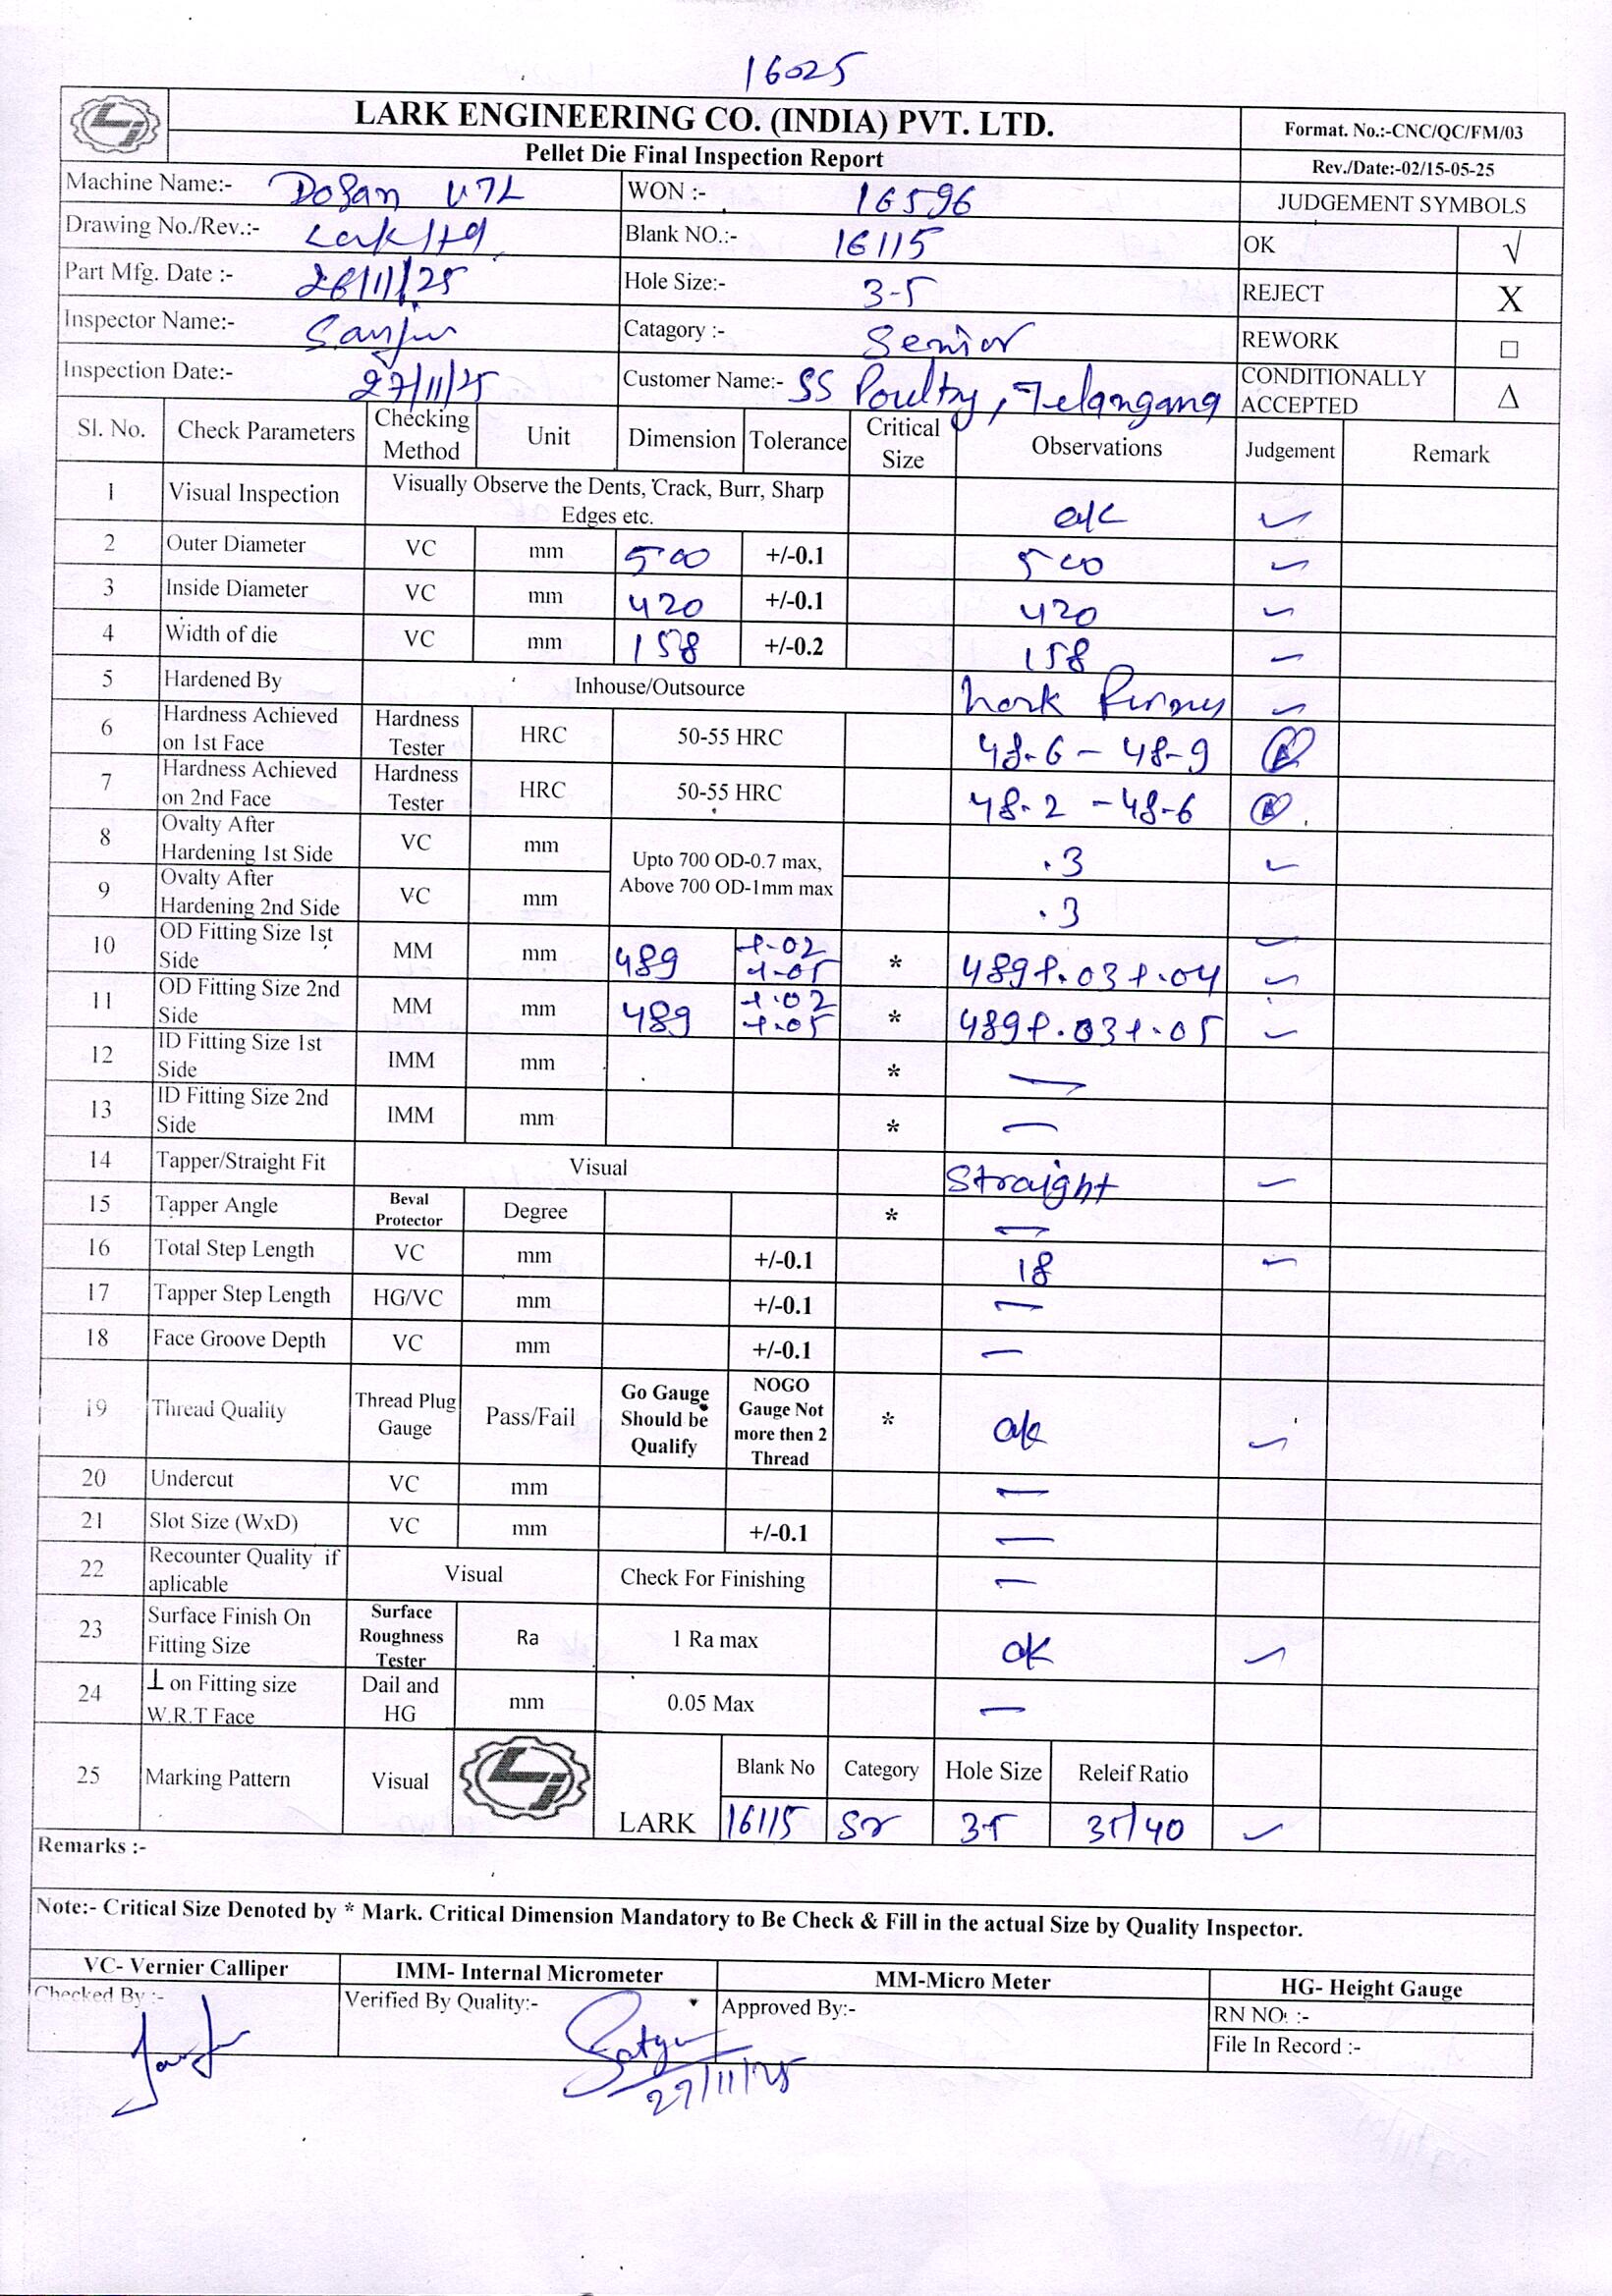 16025
LARK ENGINEERING CO. (INDIA) PVT. LTD.
Format. No.:-CNC/QC/FM/03
Pellet Die Final Inspection Report
Rev./Date:-02/15-05-25
Machine Name:- Dosan
WON :- 16596
JUDGEMENT SYMBOLS
Drawing No./Rev.:-
Blank NO.:- 16115
OK √
Part Mfg. Date :- 26/11/25
Hole Size:- 3-5
REJECT X
Inspector Name:- Sanju
Catagory :- Senior
REWORK □
Inspection Date:- 27/11/25
Customer Name:- SS Poultry, Telangana
CONDITIONALLY ACCEPTED Δ
Sl. No. Check Parameters Checking Method Unit Dimension Tolerance Critical Size Observations Judgement Remark
1 Visual Inspection Visually Observe the Dents, Crack, Burr, Sharp Edges etc. ok ✓
2 Outer Diameter VC mm 500 +/-0.1 500 ✓
3 Inside Diameter VC mm 420 +/-0.1 420 ✓
4 Width of die VC mm 158 +/-0.2 158 ✓
5 Hardened By Inhouse/Outsource Lark ✓
6 Hardness Achieved on 1st Face Hardness Tester HRC 50-55 HRC 48-6 - 48-9
7 Hardness Achieved on 2nd Face Hardness Tester HRC 50-55 HRC 48-2 - 48-6
8 Ovalty After Hardening 1st Side VC mm Upto 700 OD-0.7 max, Above 700 OD-1mm max .3 ✓
9 Ovalty After Hardening 2nd Side VC mm .3 ✓
10 OD Fitting Size 1st Side MM mm 489 +.02 +.05 * 489+.03+.04 ✓
11 OD Fitting Size 2nd Side MM mm 489 +.02 +.05 * 489+.03+.05 ✓
12 ID Fitting Size 1st Side IMM mm * —
13 ID Fitting Size 2nd Side IMM mm * —
14 Tapper/Straight Fit Visual Straight ✓
15 Tapper Angle Beval Protector Degree * —
16 Total Step Length VC mm +/-0.1 18 ✓
17 Tapper Step Length HG/VC mm +/-0.1 —
18 Face Groove Depth VC mm +/-0.1 —
19 Thread Quality Thread Plug Gauge Pass/Fail Go Gauge Should be Qualify NOGO Gauge Not more then 2 Thread * ok ✓
20 Undercut VC mm —
21 Slot Size (WxD) VC mm +/-0.1 —
22 Recounter Quality if aplicable Visual Check For Finishing —
23 Surface Finish On Fitting Size Surface Roughness Tester Ra 1 Ra max ok ✓
24 ⊥ on Fitting size W.R.T Face Dail and HG mm 0.05 Max —
25 Marking Pattern Visual LARK Blank No Category Hole Size Releif Ratio
16115 Sr 35 35/40 ✓
Remarks :-
Note:- Critical Size Denoted by * Mark. Critical Dimension Mandatory to Be Check & Fill in the actual Size by Quality Inspector.
VC- Vernier Calliper IMM- Internal Micrometer MM-Micro Meter HG- Height Gauge
Checked By :- Verified By Quality:- Approved By:- RN NO. :-
File In Record :-
27/11/25